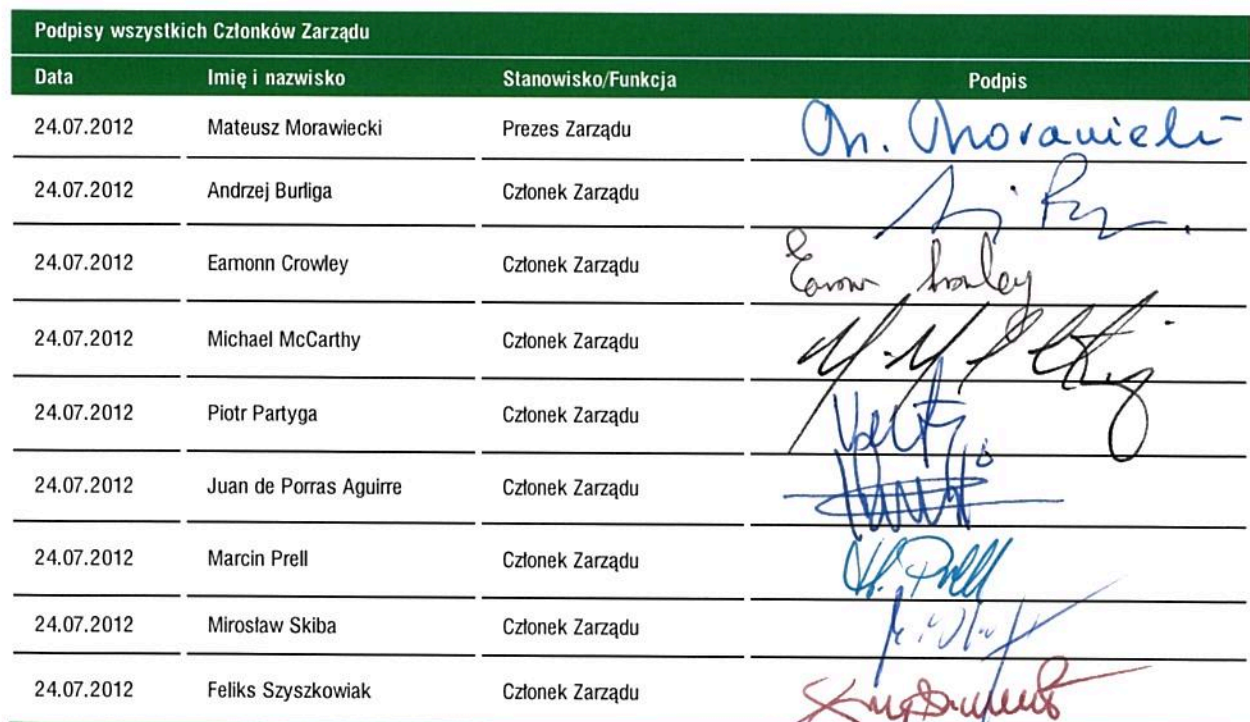 Podpisy wszystkich Członków Zarządu
Data Imię i nazwisko Stanowisko/Funkcja Podpis
24.07.2012 Mateusz Morawiecki Prezes Zarządu M. Morawiecki
24.07.2012 Andrzej Burliga Członek Zarządu
24.07.2012 Eamonn Crowley Członek Zarządu Eamonn Crowley
24.07.2012 Michael McCarthy Członek Zarządu
24.07.2012 Piotr Partyga Członek Zarządu
24.07.2012 Juan de Porras Aguirre Członek Zarządu
24.07.2012 Marcin Prell Członek Zarządu M. Prell
24.07.2012 Mirosław Skiba Członek Zarządu
24.07.2012 Feliks Szyszkowiak Członek Zarządu